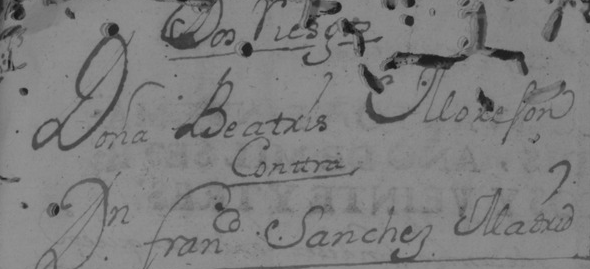 Dos Riesgs
Doña Beatris Moreson
Conttra
Dn franco Sanchez Madrid